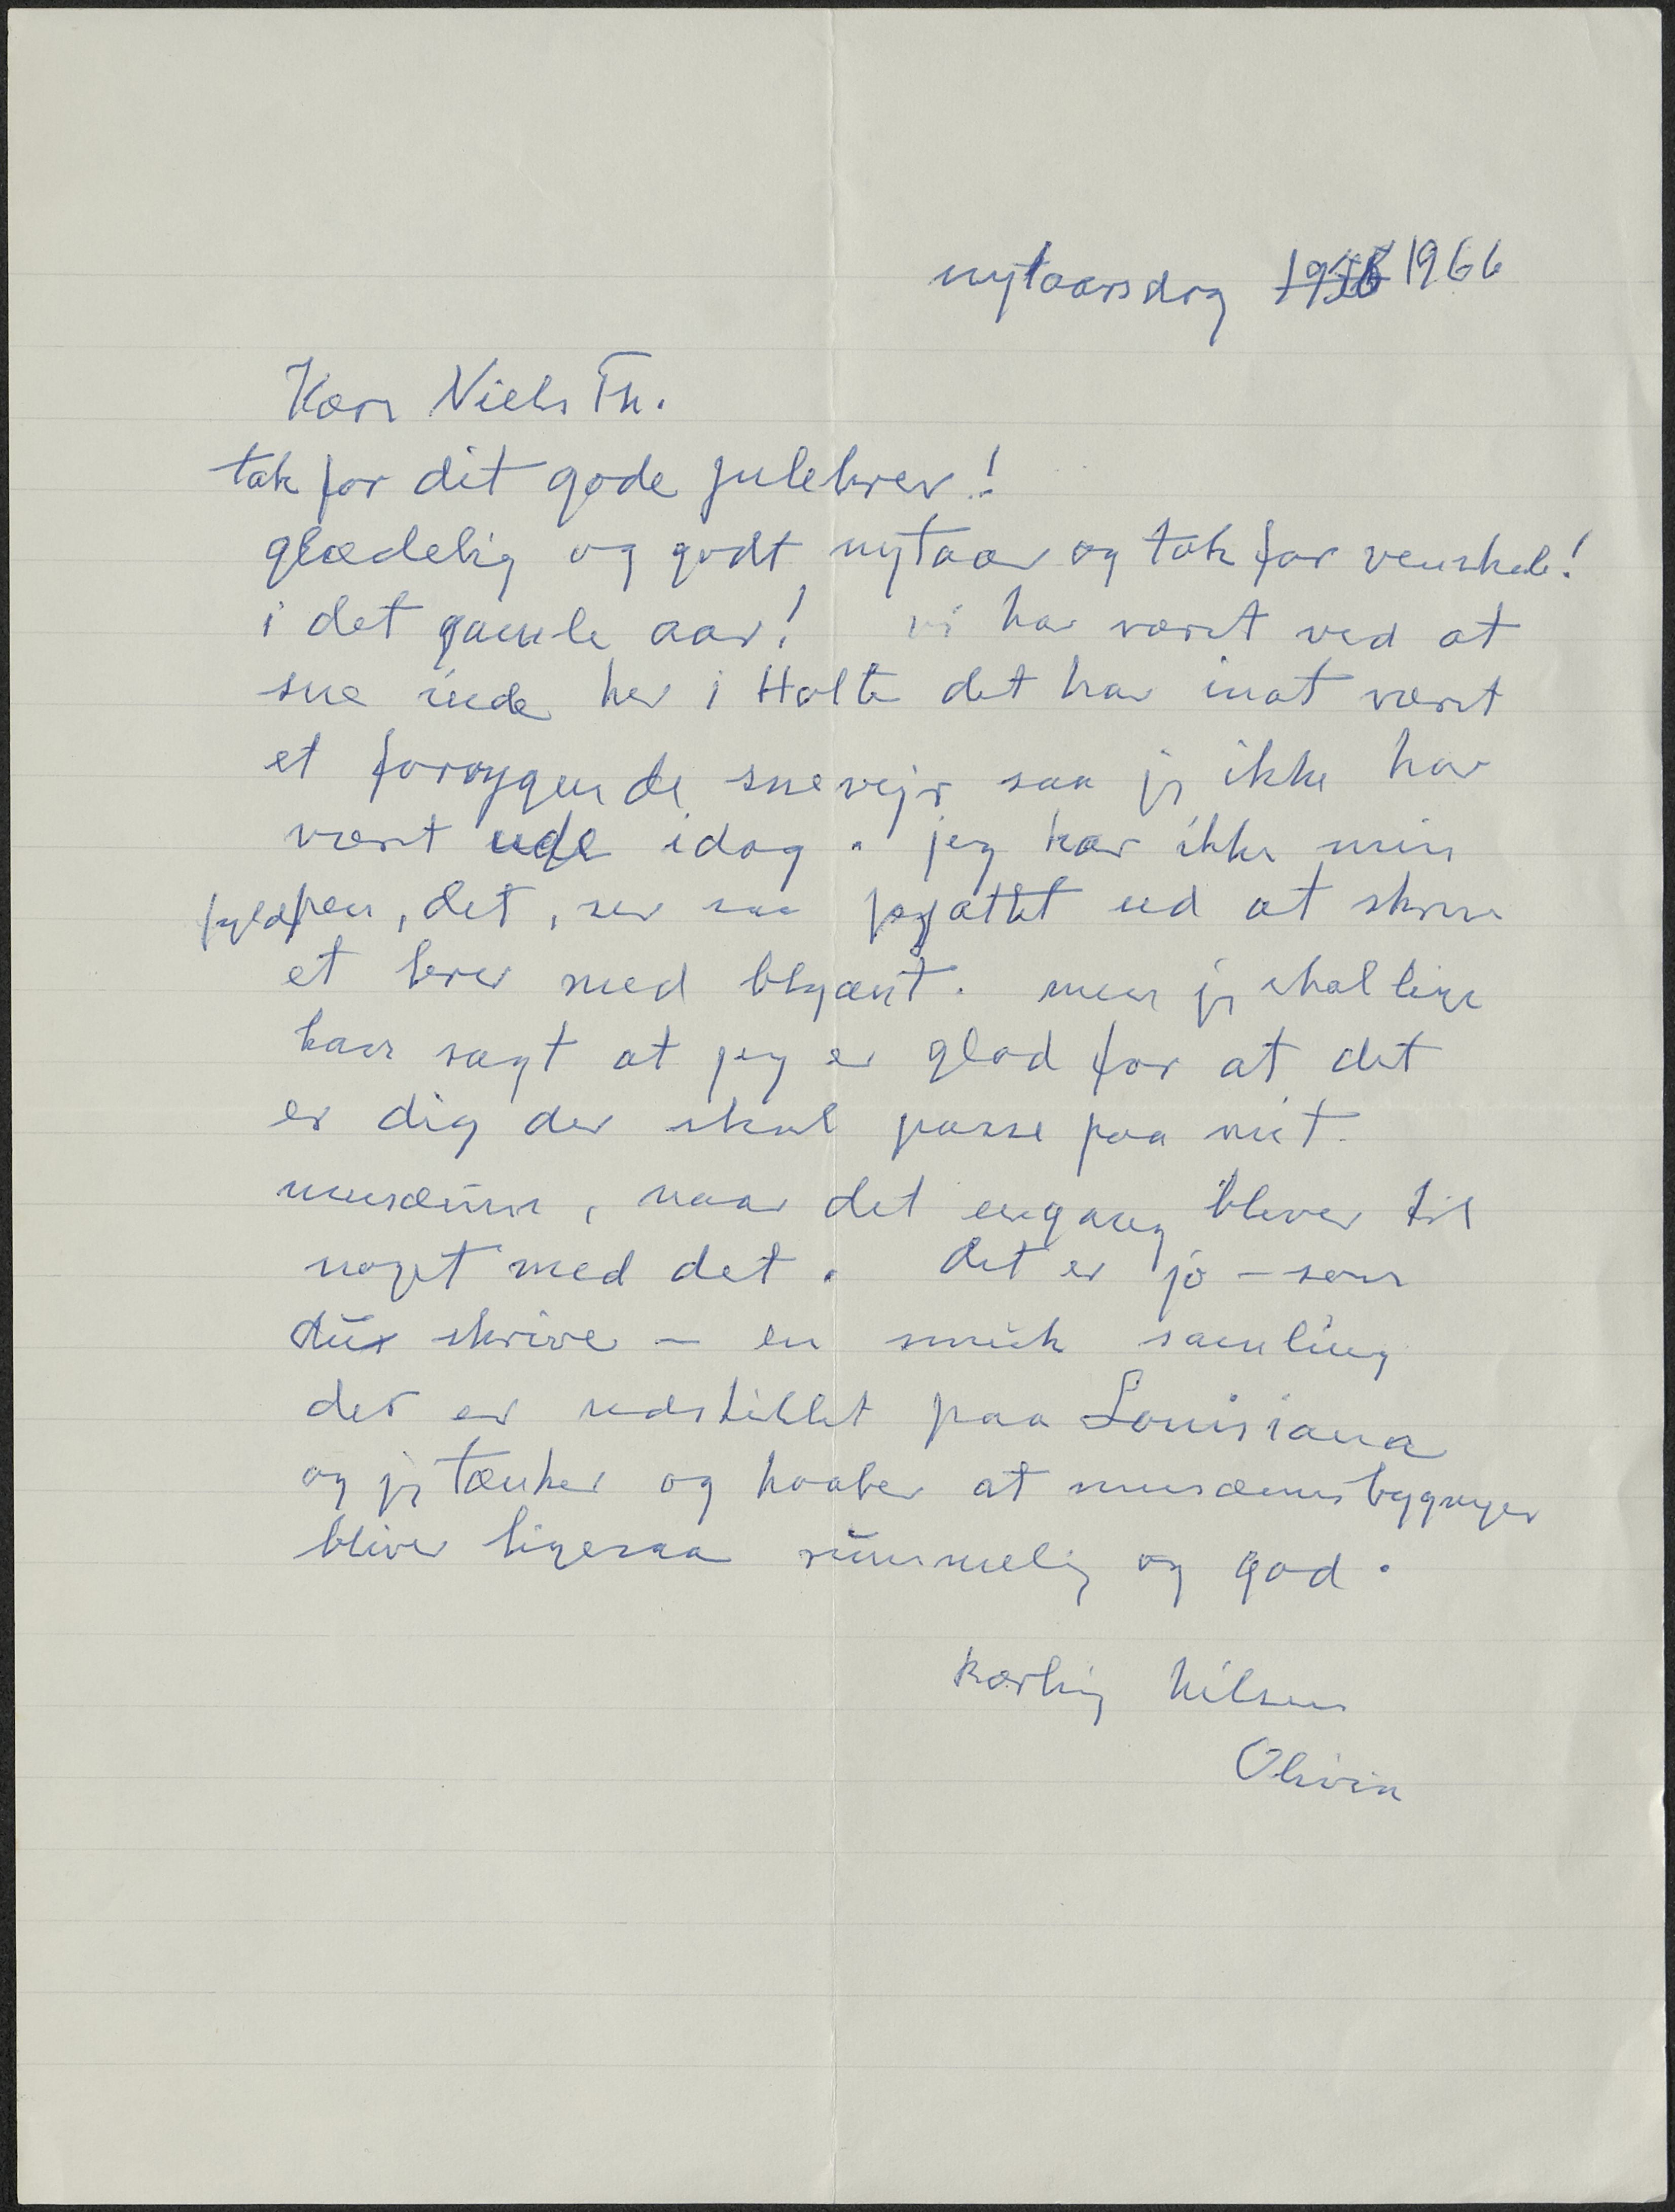 nytaarsdag 1966
Kære Niels Th.
tak for dit gode julebrev!
glædelig og godt nytaar og tak for venskab!
i det gamle aar! vi har været ved at
sne inde her i Holte det har inat været
et forrygende snevejr saa jeg ikke har
været ude idag. jeg har ikke min
fyldepen, det, ser saa pjattet ud at skrive
et brev med blyant. men jeg skal lige
have sagt at jeg er glad for at det
er dig der skal passe paa mit
musæum, naar det engang bliver til
noget med det. det er jo – som
du skrive – en smuk samling
der er udstillet paa Louisiana
og jeg tænker og haaber at musæumsbygningen
bliver ligesaa rummelig og god.
kærlig hilsen
Olivia